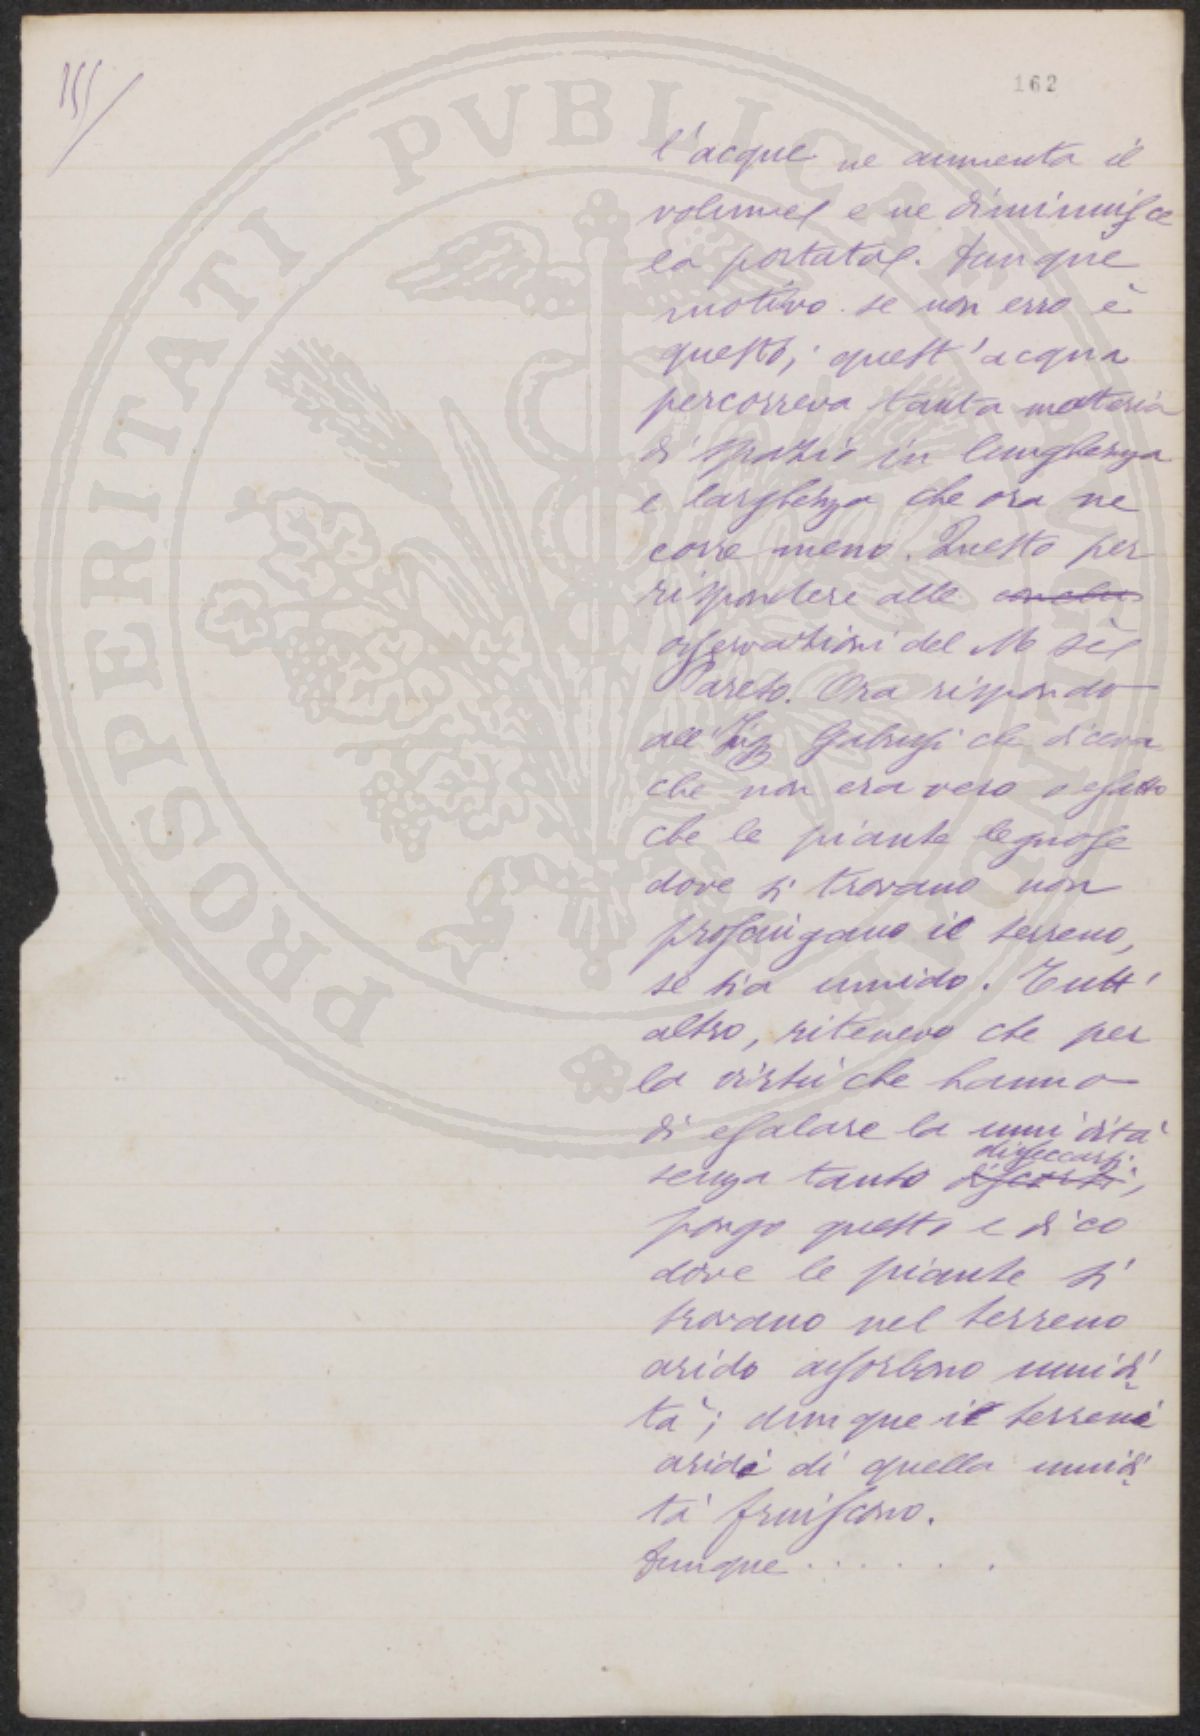 155/
162
l'acque ne aumenta il
volume e ne diminuisce
la portata. Dunque
motivo se non erro è
questo; quest'acqua
percorreva tanta materia
di spazio in lunghezza
e larghezza che ora ne
corre meno. Questo per
rispondere alle conclu
osservazioni del M se
Pareto. Ora rispondo
all'Ing Gabussi che diceva
che non era vero o esatto
che le piante legnose
dove si trovano non
prosciugano il terreno,
se sia umido. Tutt'
altro, ritenevo che per
la virtù che hanno
di esalare la umidità
disseccarsi
senza tanto
pongo questo e dico
dove le piante si
trovano nel terreno
arido assorbono umidi
tà; dunque il terreni
aridi di quella umidi
tà fruiscono.
Dunque . . . . . .
PROSPERITATI PVBLICAE